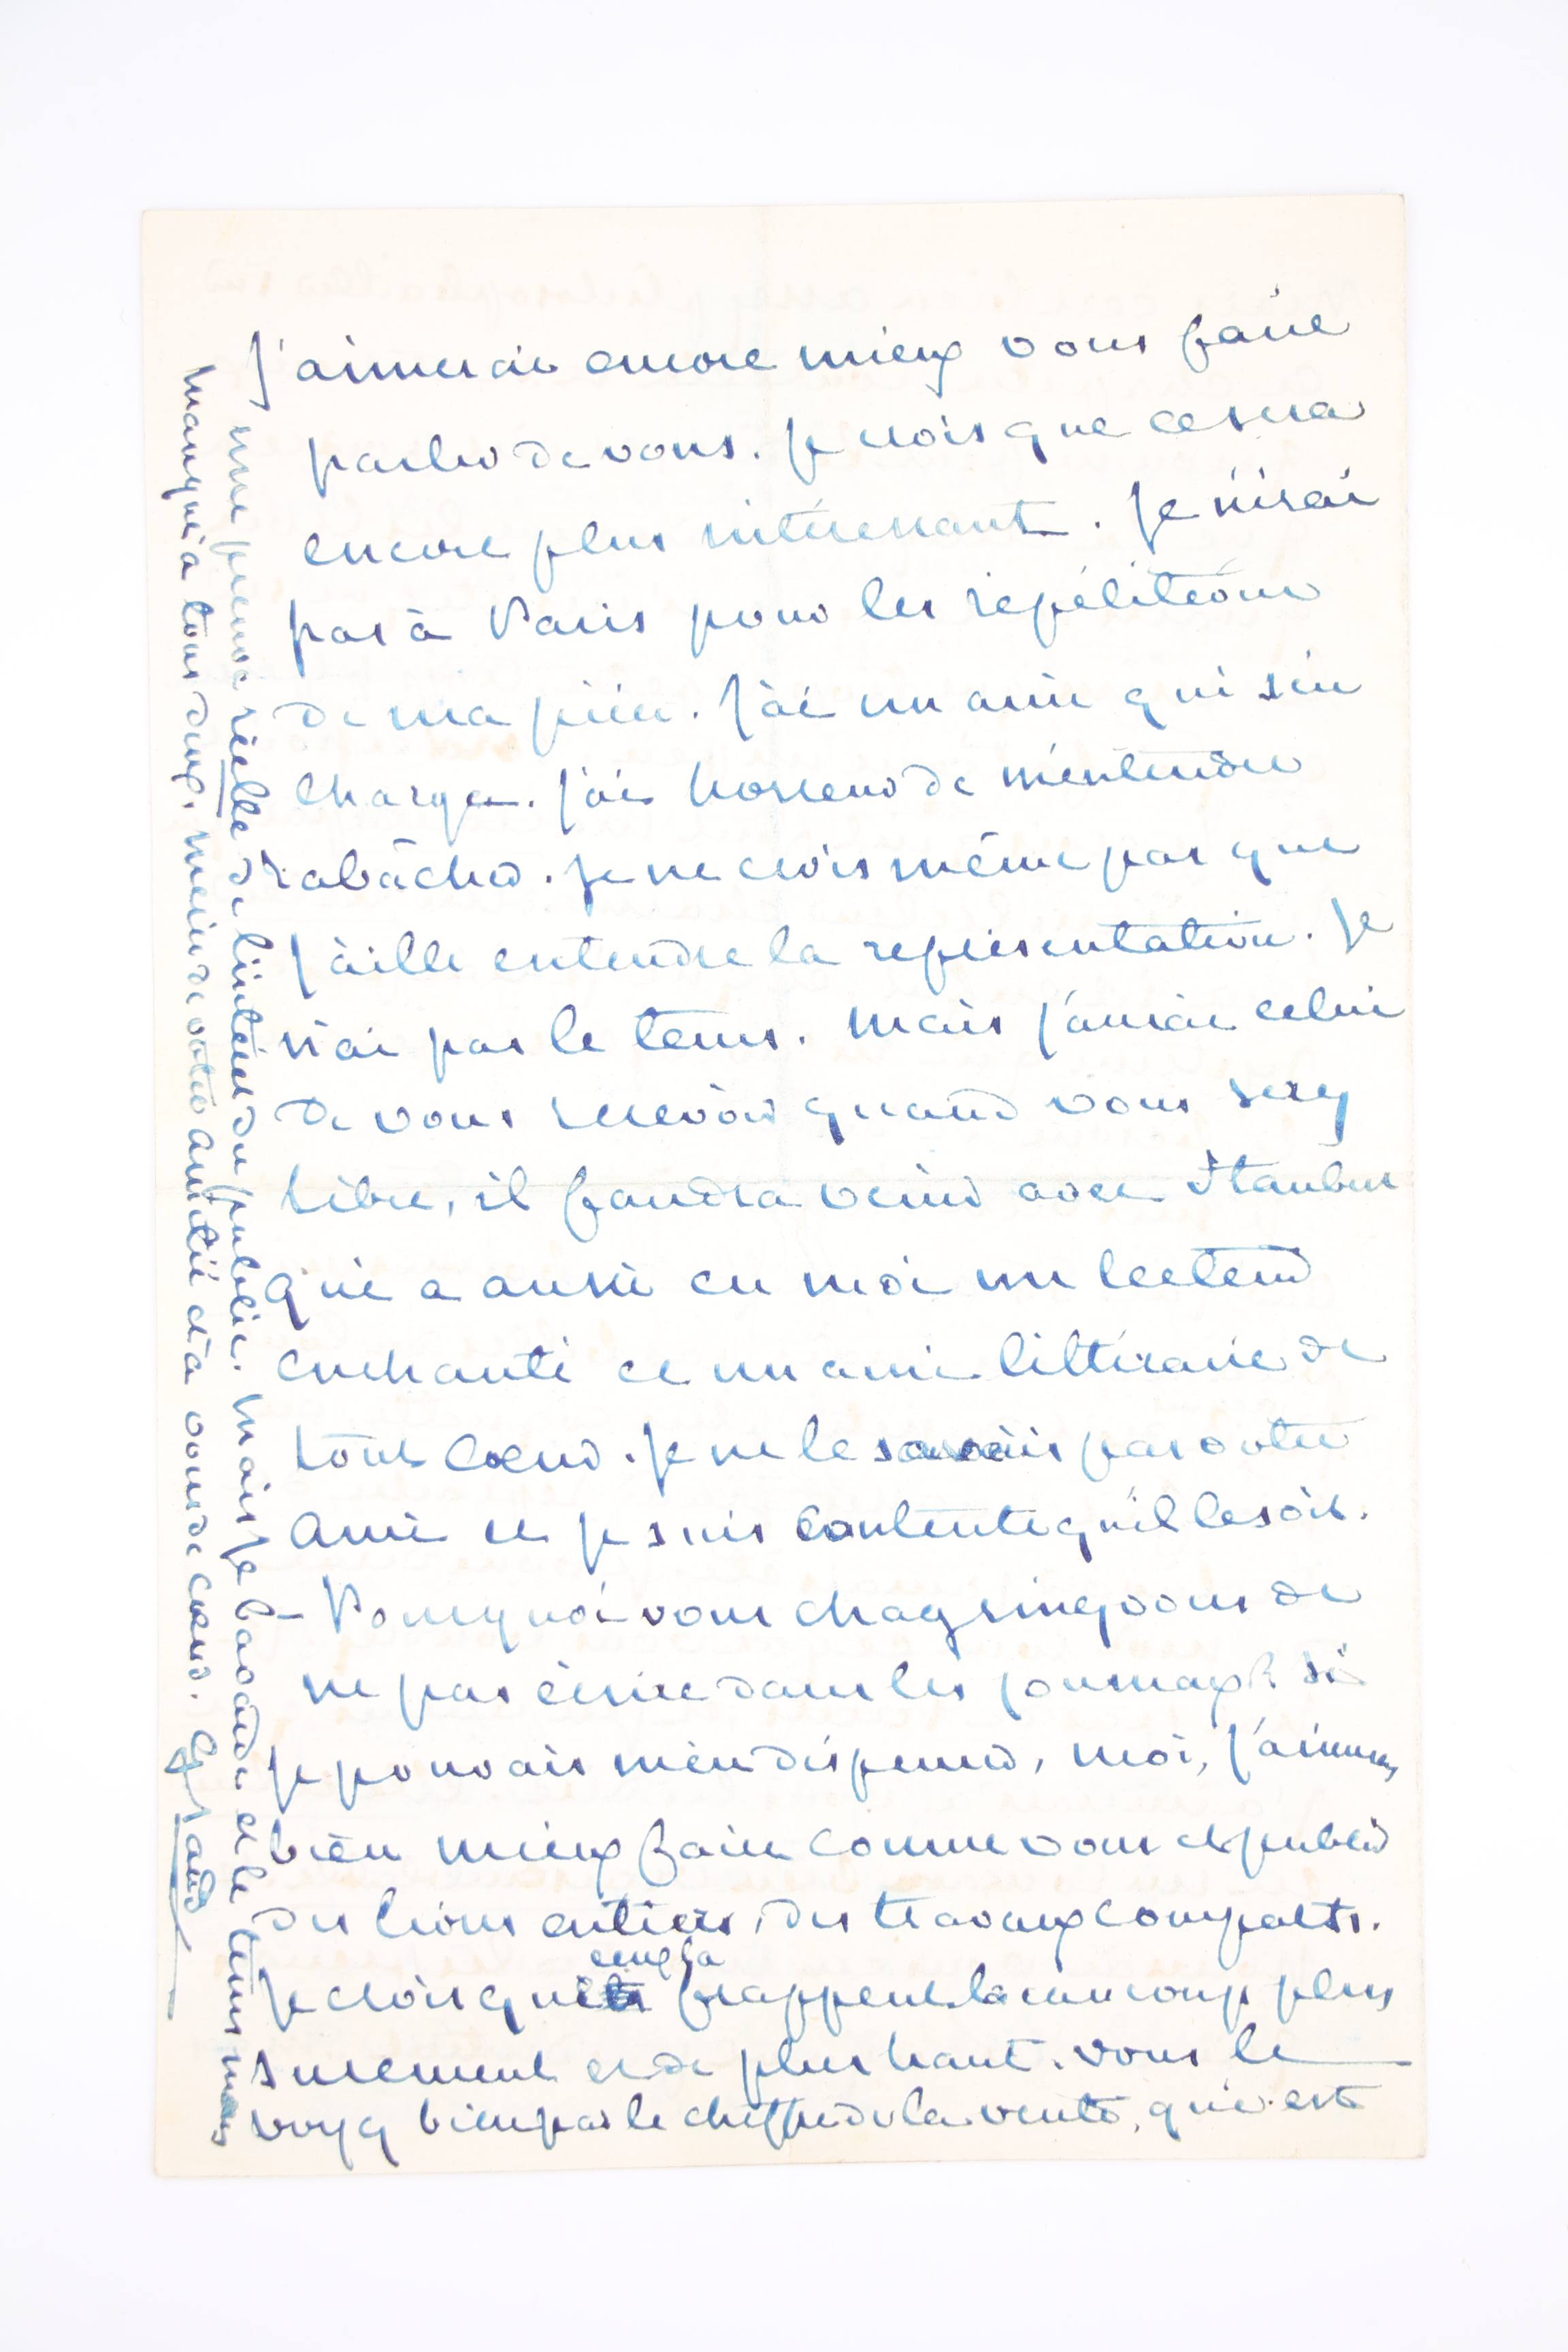 J'aimerais encore mieux vous faire
parler de vous. Je crois que ce sera
encore plus intéressant. Je n'irai
pas à Paris pour les répétitions
de ma pièce. J'ai un ami qui s'en
charge. J'ai horreur de m'entendre
rabâcher. Je ne crois même pas que
j'aille entendre la représentation. Je
n'ai pas le tems. Mais j'aurai celui
de vous recevoir quand vous serez
libre, il faudra venir avec Flaubert
qui a aussi en moi un lecteur
enchanté et un ami littéraire de
tout cœur. Je ne le savais pas votre
ami et je suis contente qu'il le soit.
– Pourquoi vous chagrinez vous de
ne pas écrire dans les journaux? Si
je pouvais m'en dispenser, moi, j'aimerais
bien mieux faire comme vous et publier
des livres entiers, des travaux compacts.
Je crois que ceux là frappent beaucoup plus
surement et de plus haut. Vous le
voyez bien par le chiffre de la vente, qui est
une preuve réelle de l'intérêt du public. Mais je bavarde et le tems nous
manque à tous deux. Merci de votre amitié et à vous de cœur.
G Sand